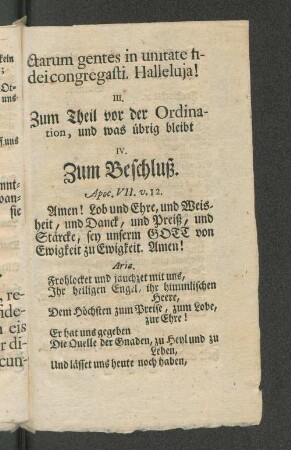 ctarum gentes in unitate fi-
dei congregasti. Halleluja!
III.
Zum Theil vor der Ordina-
tion, und was übrig bleibt
IV.
Zum Beschluß.
Apoc. VII. v. 12.
Amen! Lob und Ehre, und Weis-
heit, und Danck, und Preiß, und
Stärcke, sey unserm GOTT von
Ewigkeit zu Ewigkeit. Amen!
Aria.
Frohlocket und jauchzet mit uns,
Ihr heiligen Engel, ihr himmlischen
Heere,
Dem Höchsten zum Preise, zum Lobe,
zur Ehre!
Er hat uns gegeben
Die Quelle der Gnaden, zu Heyl und zu
Leben,
Und lässet uns heute noch haben,